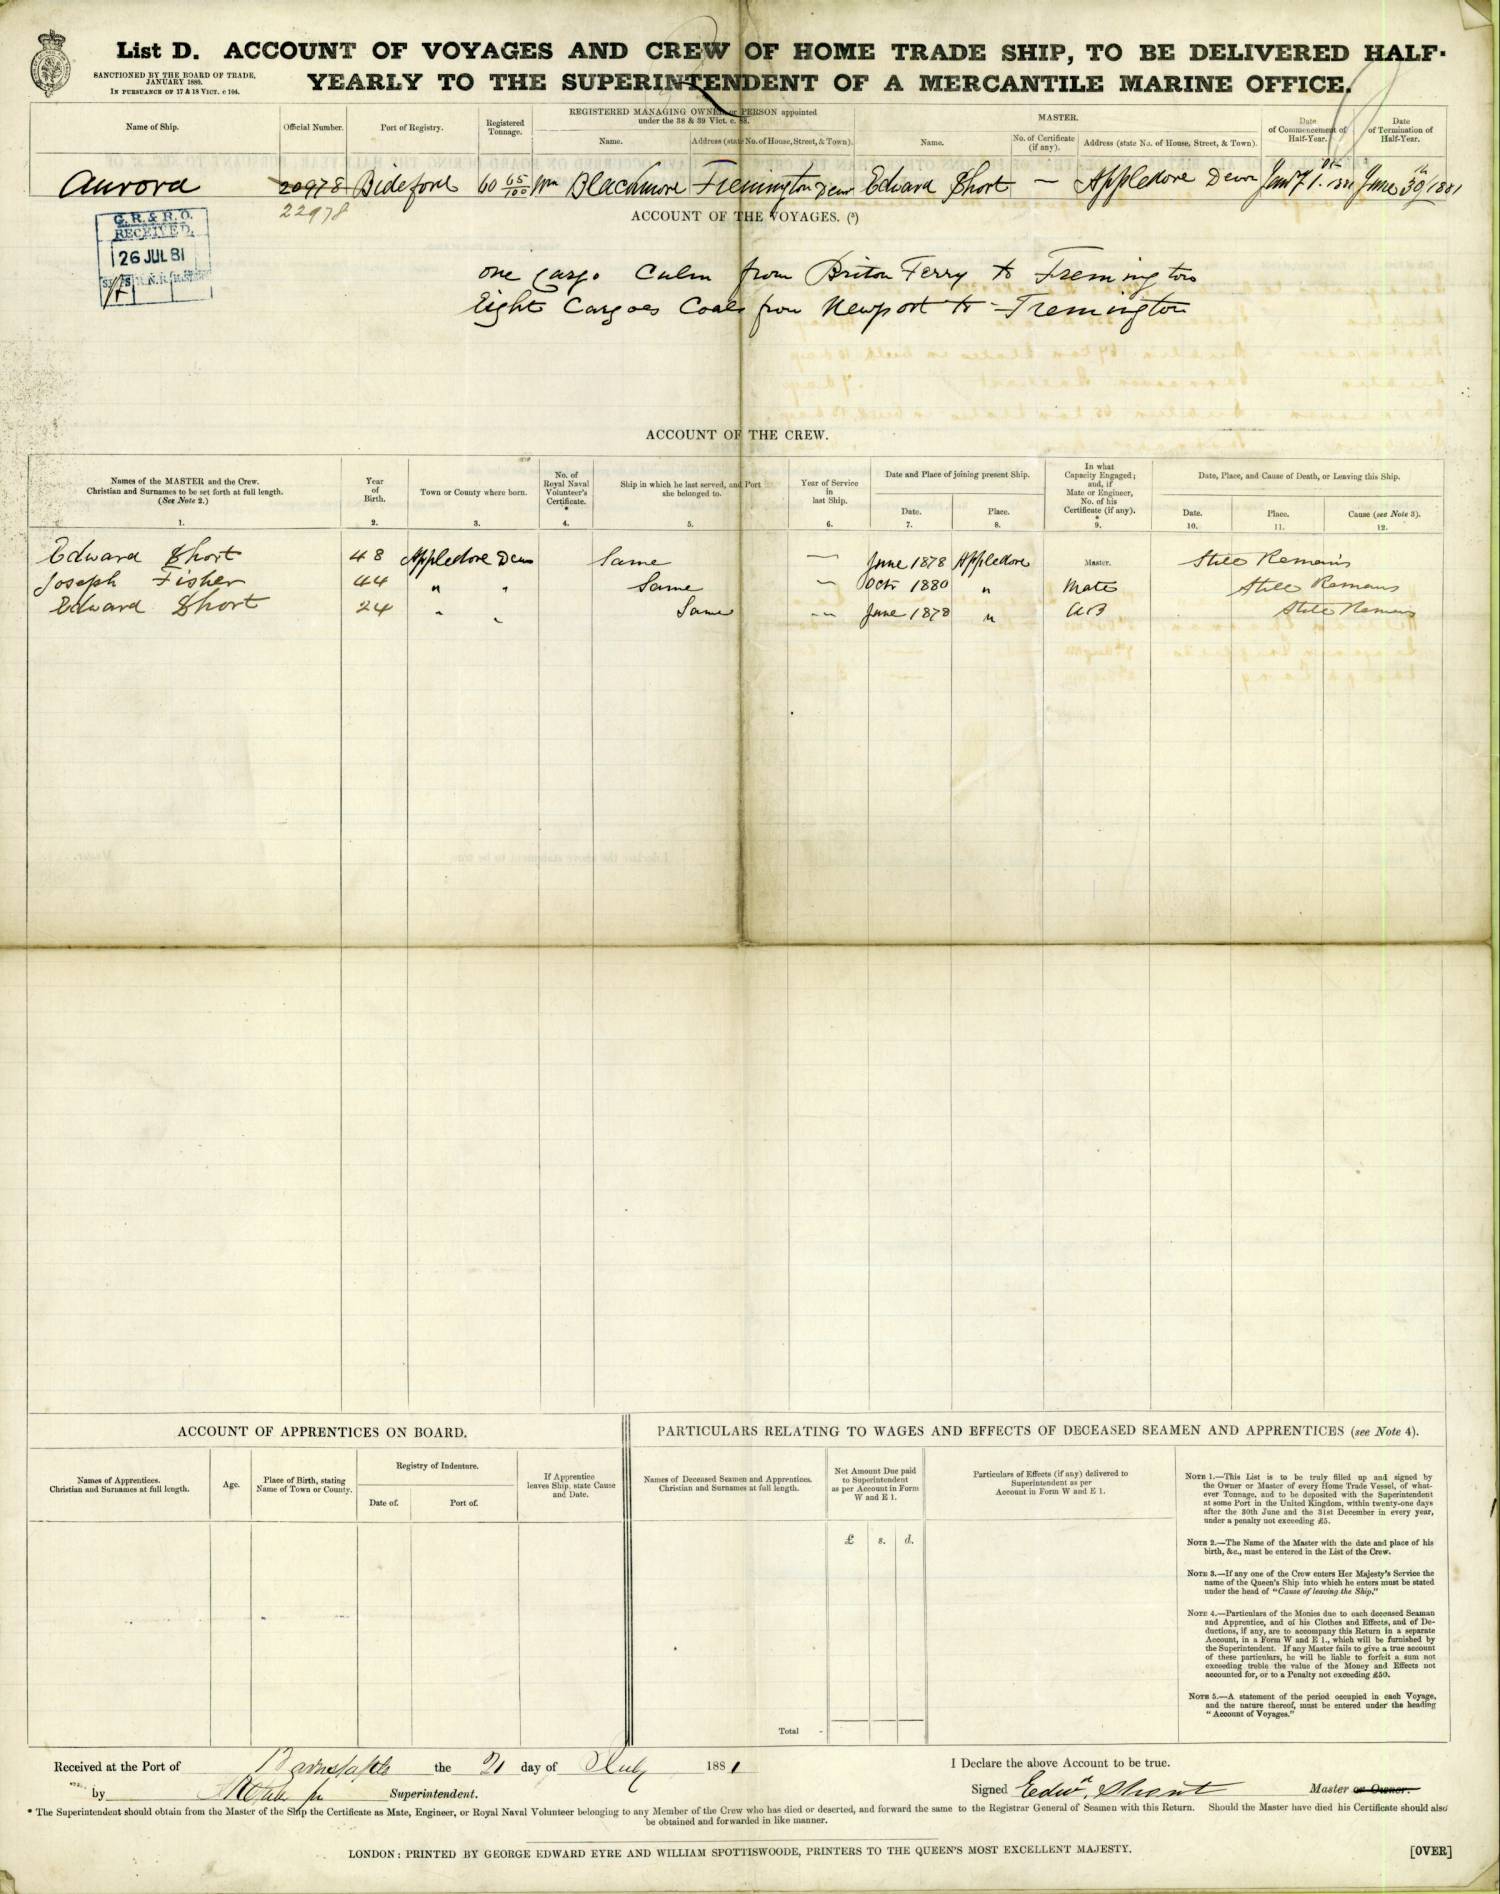 List D. ACCOUNT OF VOYAGES AND CREW OF HOME TRADE SHIP, TO BE DELIVERED HALF-
YEARLY TO THE SUPERINTENDENT OF A MERCANTILE MARINE OFFICE.
SANCTIONED BY THE BOARD OF TRADE,
JANUARY 1880.
IN PURSUANCE OF 17 & 18 VICT. c 104.
Name of Ship.
Official Number.
Port of Registry.
Registered Tonnage.
REGISTERED MANAGING OWNER or PERSON appointed
under the 38 & 39 Vict. c. 88.
Name.
Address (state No. of House, Street, & Town).
MASTER.
Name.
No. of Certificate (if any).
Address (state No. of House, Street, & Town).
Date of Commencement of Half-Year.
Date of Termination of Half-Year.
Aurora 20978 Bideford 60 65/100 Wm Blackmore Fremington Devon Edward Short — Appledore Devon Jany 1st 1881 June 30th 1881
22978
G. R. & R. O.
RECEIVED.
26 JUL 81
ACCOUNT OF THE VOYAGES. (5)
one Cargo Culm from Briton Ferry to Fremington
Eight Cargoes Coals from Newport to Fremington
ACCOUNT OF THE CREW.
Names of the MASTER and the Crew.
Christian and Surnames to be set forth at full length.
(See Note 2.)
1.
Year of Birth.
2.
Town or County where born.
3.
No. of Royal Naval Volunteer's Certificate.
*
4.
Ship in which he last served, and Port she belonged to.
5.
Year of Service in last Ship.
6.
Date and Place of joining present Ship.
Date.
7.
Place.
8.
In what Capacity Engaged; and, if Mate or Engineer, No. of his Certificate (if any).
*
9.
Date, Place, and Cause of Death, or Leaving this Ship.
Date.
10.
Place.
11.
Cause (see Note 3).
12.
Edward Short 48 Appledore Devon Same — June 1878 Appledore Master. Still Remains
Joseph Fisher 44 " " Same — Octr 1880 " Mate Still Remains
Edward Short 24 " " Same — June 1878 " AB Still Remains
ACCOUNT OF APPRENTICES ON BOARD.
Names of Apprentices.
Christian and Surnames at full length.
Age.
Place of Birth, stating Name of Town or County.
Registry of Indenture.
Date of.
Port of.
If Apprentice leaves Ship, state Cause and Date.
PARTICULARS RELATING TO WAGES AND EFFECTS OF DECEASED SEAMEN AND APPRENTICES (see Note 4).
Names of Deceased Seamen and Apprentices.
Christian and Surnames at full length.
Net Amount Due paid to Superintendent as per Account in Form W and E 1.
£ s. d.
Particulars of Effects (if any) delivered to
Superintendent as per
Account in Form W and E 1.
Total -
NOTE 1.—This List is to be truly filled up and signed by
the Owner or Master of every Home Trade Vessel, of what-
ever Tonnage, and to be deposited with the Superintendent
at some Port in the United Kingdom, within twenty-one days
after the 30th June and the 31st December in every year,
under a penalty not exceeding £5.
NOTE 2.—The Name of the Master with the date and place of his
birth, &c., must be entered in the List of the Crew.
NOTE 3.—If any one of the Crew enters Her Majesty's Service the
name of the Queen's Ship into which he enters must be stated
under the head of "Cause of leaving the Ship."
NOTE 4.—Particulars of the Monies due to each deceased Seaman
and Apprentice, and of his Clothes and Effects, and of De-
ductions, if any, are to accompany this Return in a separate
Account, in a Form W and E 1., which will be furnished by
the Superintendent. If any Master fails to give a true account
of these particulars, he will be liable to forfeit a sum not
exceeding treble the value of the Money and Effects not
accounted for, or to a Penalty not exceeding £50.
NOTE 5.—A statement of the period occupied in each Voyage,
and the nature thereof, must be entered under the heading
"Account of Voyages."
Received at the Port of Barnstaple the 21 day of July 1881
by Superintendent.
I Declare the above Account to be true.
Signed Edwd. Short Master or Owner.
* The Superintendent should obtain from the Master of the Ship the Certificate as Mate, Engineer, or Royal Naval Volunteer belonging to any Member of the Crew who has died or deserted, and forward the same to the Registrar General of Seamen with this Return. Should the Master have died his Certificate should also
be obtained and forwarded in like manner.
LONDON: PRINTED BY GEORGE EDWARD EYRE AND WILLIAM SPOTTISWOODE, PRINTERS TO THE QUEEN'S MOST EXCELLENT MAJESTY.
[OVER]